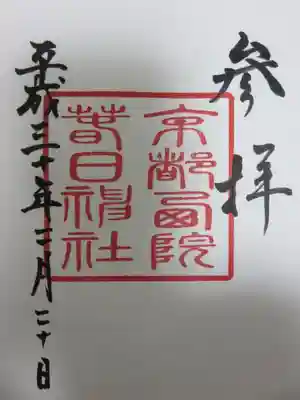 参拝
京都西院
春日神社
平成三十年三月二十日